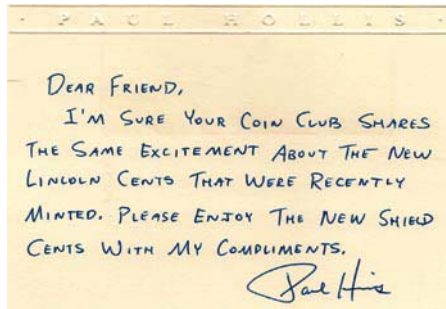 · PAUL HOLLIS ·
DEAR FRIEND,
I'M SURE YOUR COIN CLUB SHARES
THE SAME EXCITEMENT ABOUT THE NEW
LINCOLN CENTS THAT WERE RECENTLY
MINTED. PLEASE ENJOY THE NEW SHIELD
CENTS WITH MY COMPLIMENTS.
Paul Hollis